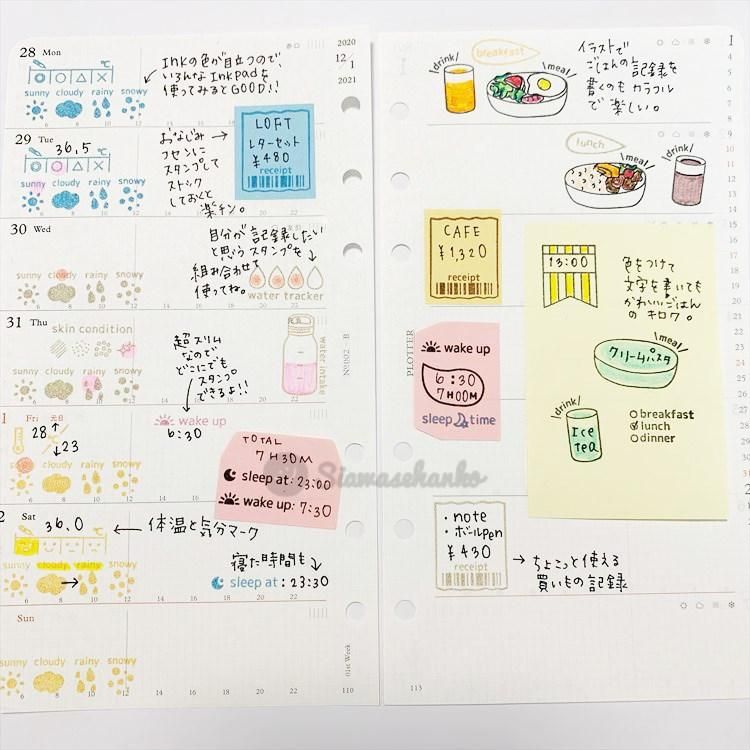 28 Mon
2020
12/1
2021
℃
sunny cloudy rainy snowy
Inkの色が目立つので、
いろんなInkpadを
使ってみるとGOOD!!
6 8 10 12
29 Tue
36.5
℃
sunny cloudy rainy snowy
おなじみ
フセンに
スタンプして
ストック
しておくと
楽チン。
LOFT
レターセット
¥480
receipt
30 Wed
sunny cloudy rainy snowy
自分が記録したい
と思うスタンプを
組み合わせて
使ってね。
water tracker
31 Thu
skin condition
sunny cloudy rainy snowy
超スリム
なので
どこにでも
スタンプ
できるよ!!
water intake
No.002 - B
1 Fri 元日
28 ↑
℃
↓ 23
sunny cloudy rainy snowy
wake up
6:30
TOTAL
7H30M
sleep at: 23:00
wake up: 7:30
Siawasehanko
2 Sat
36.0
℃
← 体温と気分マーク
sunny cloudy rainy snowy
寝た時間も
sleep at: 23:30
Sun
sunny cloudy rainy snowy
6 8 10 12 14 16 18 20 22
01st Week
110
1
drink
breakfast
meal
イラストで
ごはんの記録を
書くのもカラフル
で楽しい。
lunch
meal
drink
CAFE
¥1,320
receipt
13:00
色をつけて
文字を書いても
かわいいごはん
のキロク。
PLOTTER
wake up
6:30
7H00M
sleep time
meal
クリームパスタ
drink
Ice
TEA
breakfast
lunch
dinner
・note
・ボールpen
¥430
receipt
→ ちょこっと使える
買いもの記録
113